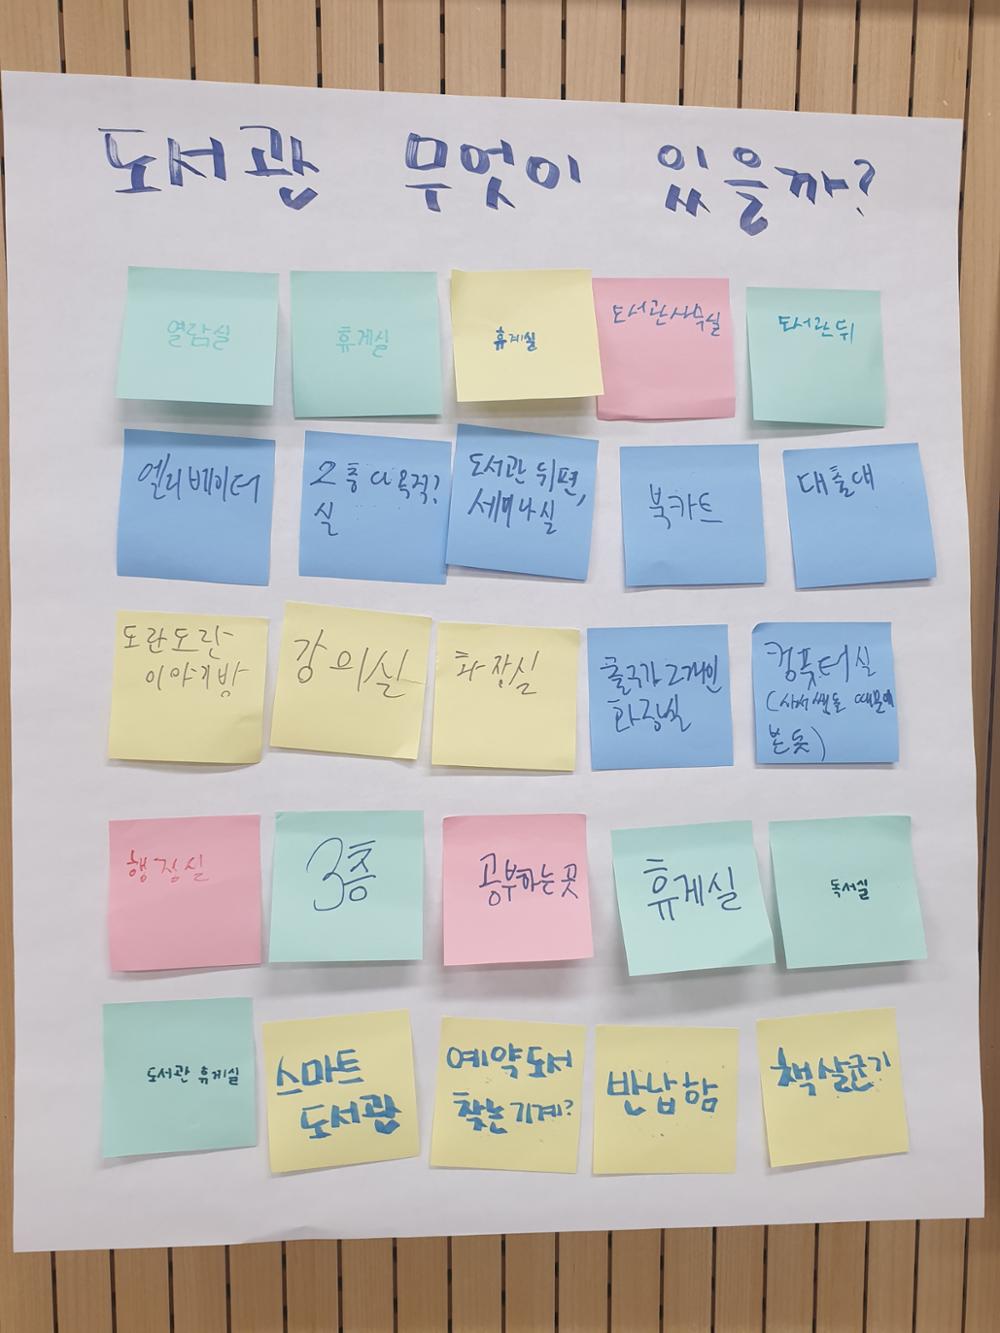 도서관 무엇이 있을까?
열람실
휴게실
휴게실
도서관사수실
도서관 뒤
엘리베이터
2층 다목적?
실
도서관 뒤편,
세미나실
북카트
대출대
도란도란
이야기방
강의실
화장실
출구가 2개인
화장실
컴퓨터실
(사서쌤들 때문에
본 듯)
행정실
3층
공부하는 곳
휴게실
독서실
도서관 휴게실
스마트
도서관
예약도서
찾는기계?
반납함
책살균기